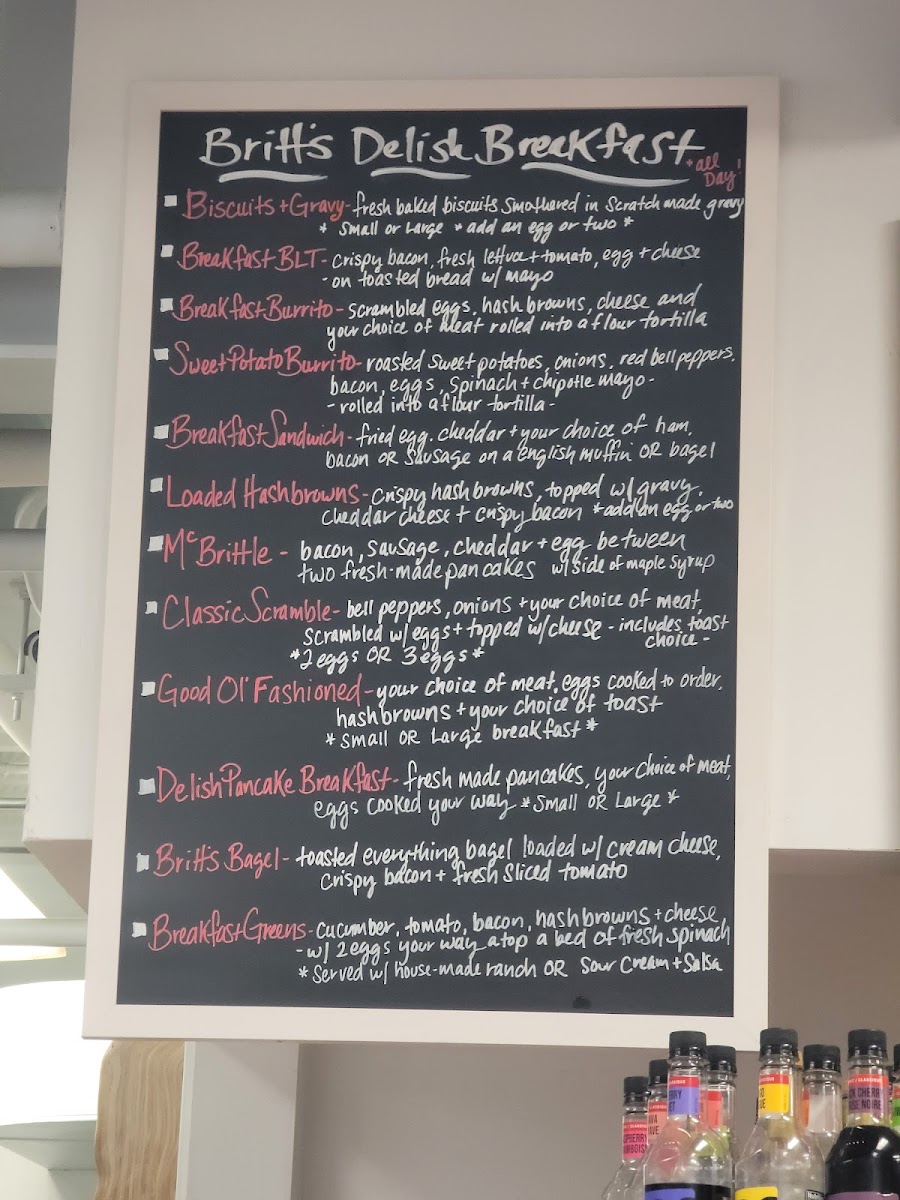 Britt's Delish Breakfast
*all Day!
Biscuits + Gravy - fresh baked biscuits smothered in scratch made gravy
* Small or Large * add an egg or two *
Breakfast BLT - crispy bacon, fresh lettuce + tomato, egg + cheese
- on toasted bread w/ mayo
Breakfast Burrito - scrambled eggs, hash browns, cheese and
your choice of meat rolled into a flour tortilla
Sweet Potato Burrito - roasted sweet potatoes, onions, red bell peppers,
bacon, eggs, spinach + chipotle mayo -
- rolled into a flour tortilla -
Breakfast Sandwich - fried egg, cheddar + your choice of ham,
bacon OR sausage on a english muffin OR bagel
Loaded Hashbrowns - crispy hash browns, topped w/ gravy,
cheddar cheese + crispy bacon *add an egg or two
McBrittle - bacon, sausage, cheddar + egg between
two fresh-made pancakes w/ side of maple syrup
Classic Scramble - bell peppers, onions + your choice of meat,
scrambled w/ eggs + topped w/ cheese - includes toast
choice -
*2 eggs OR 3 eggs*
Good Ol' Fashioned - your choice of meat, eggs cooked to order,
hash browns + your choice of toast
* Small OR Large breakfast *
Delish Pancake Breakfast - fresh made pancakes, your choice of meat,
eggs cooked your way *Small OR Large *
Britt's Bagel - toasted everything bagel loaded w/ cream cheese,
crispy bacon + fresh sliced tomato
Breakfast Greens - cucumber, tomato, bacon, hash browns + cheese,
- w/ 2 eggs your way atop a bed of fresh spinach
* Served w/ house-made ranch OR Sour Cream + Salsa